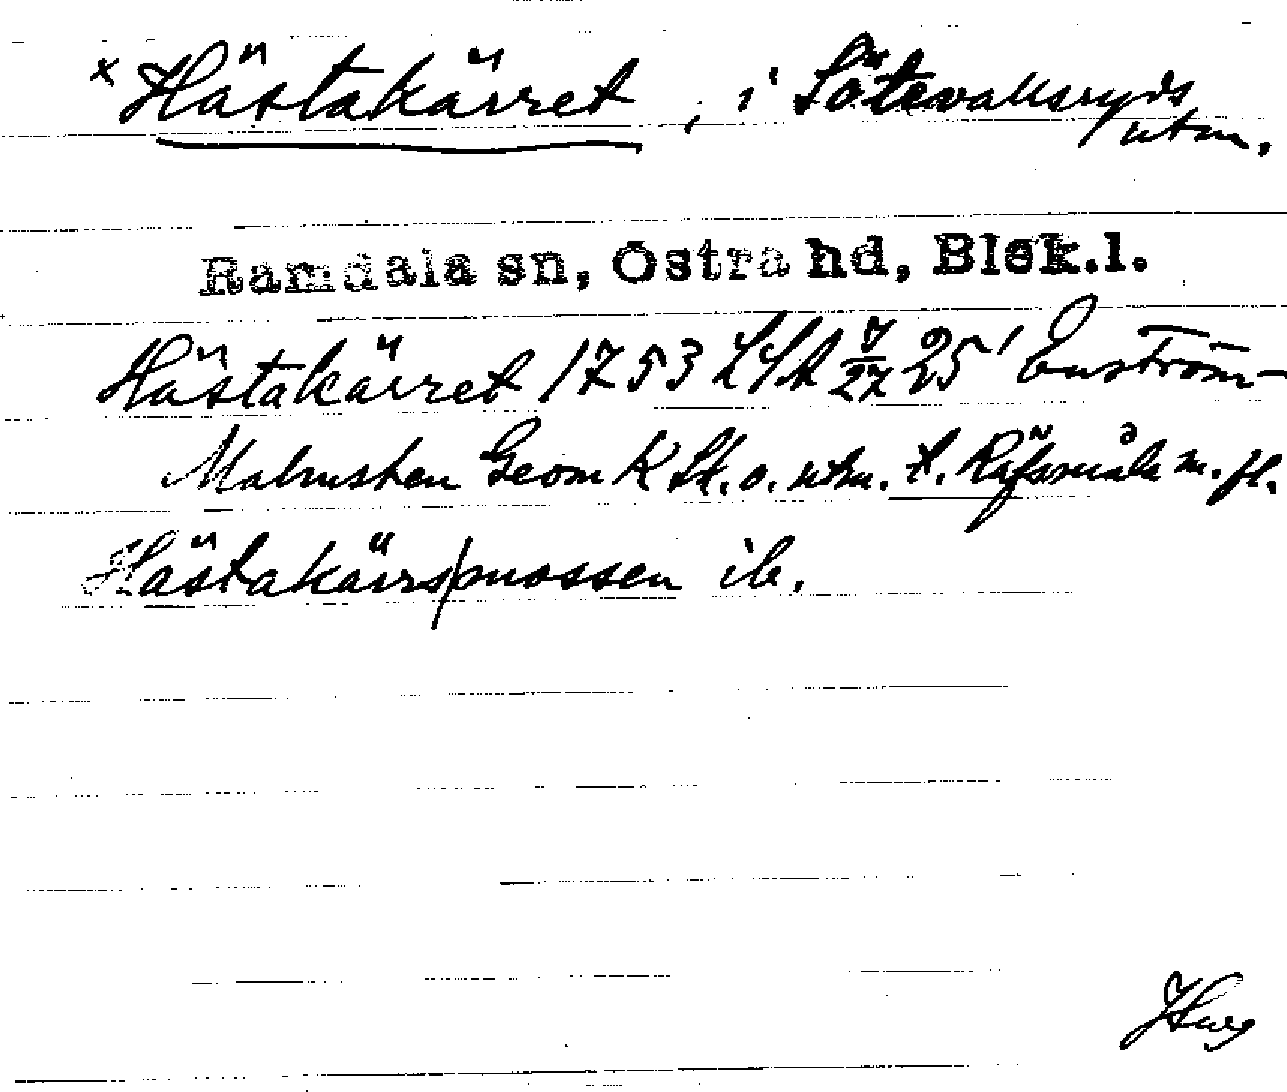 × Hästakärret, i Sötevaksryds
utm.
Ramdala sn, Östra hd, Blek.l.
Hästakärret 1753 LSA 25 Enström-
Malmsten Geom K St. o. utm. t. Räfsmåla m. fl.
Hästakärrs/mossen ib.